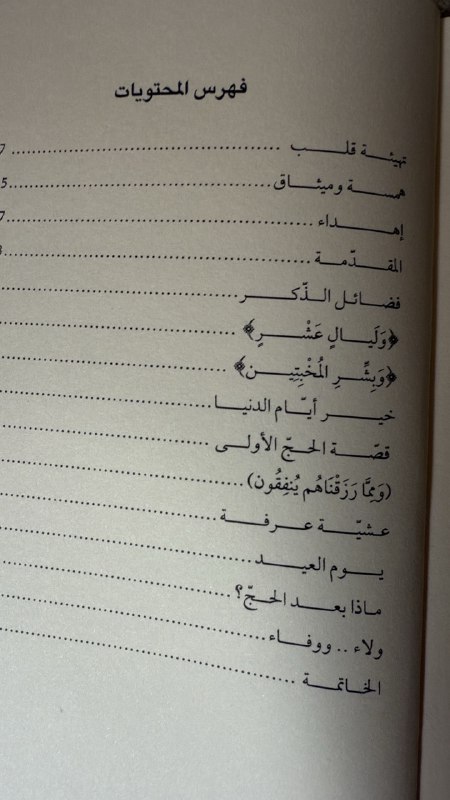 فهرس المحتويات
تهيئة قلب ........................................
همسة وميثاق ........................................ 5
إهداء ........................................ 7
المقدّمة ........................................
فضائل الذّكر ........................................
﴿وَلَيالٍ عَشْرٍ﴾ ........................................
﴿وَبِشِّرِ المُخْبِتِين﴾ ........................................
خير أيّام الدنيا ........................................
قصّة الحجّ الأولى ........................................
(وَمِمَّا رَزَقْنَاهُم يُنفِقُون) ........................................
عشيّة عرفة ........................................
يوم العيد ........................................
ماذا بعد الحجّ؟ ........................................
ولاء .. ووفاء ........................................
الخاتمة ........................................